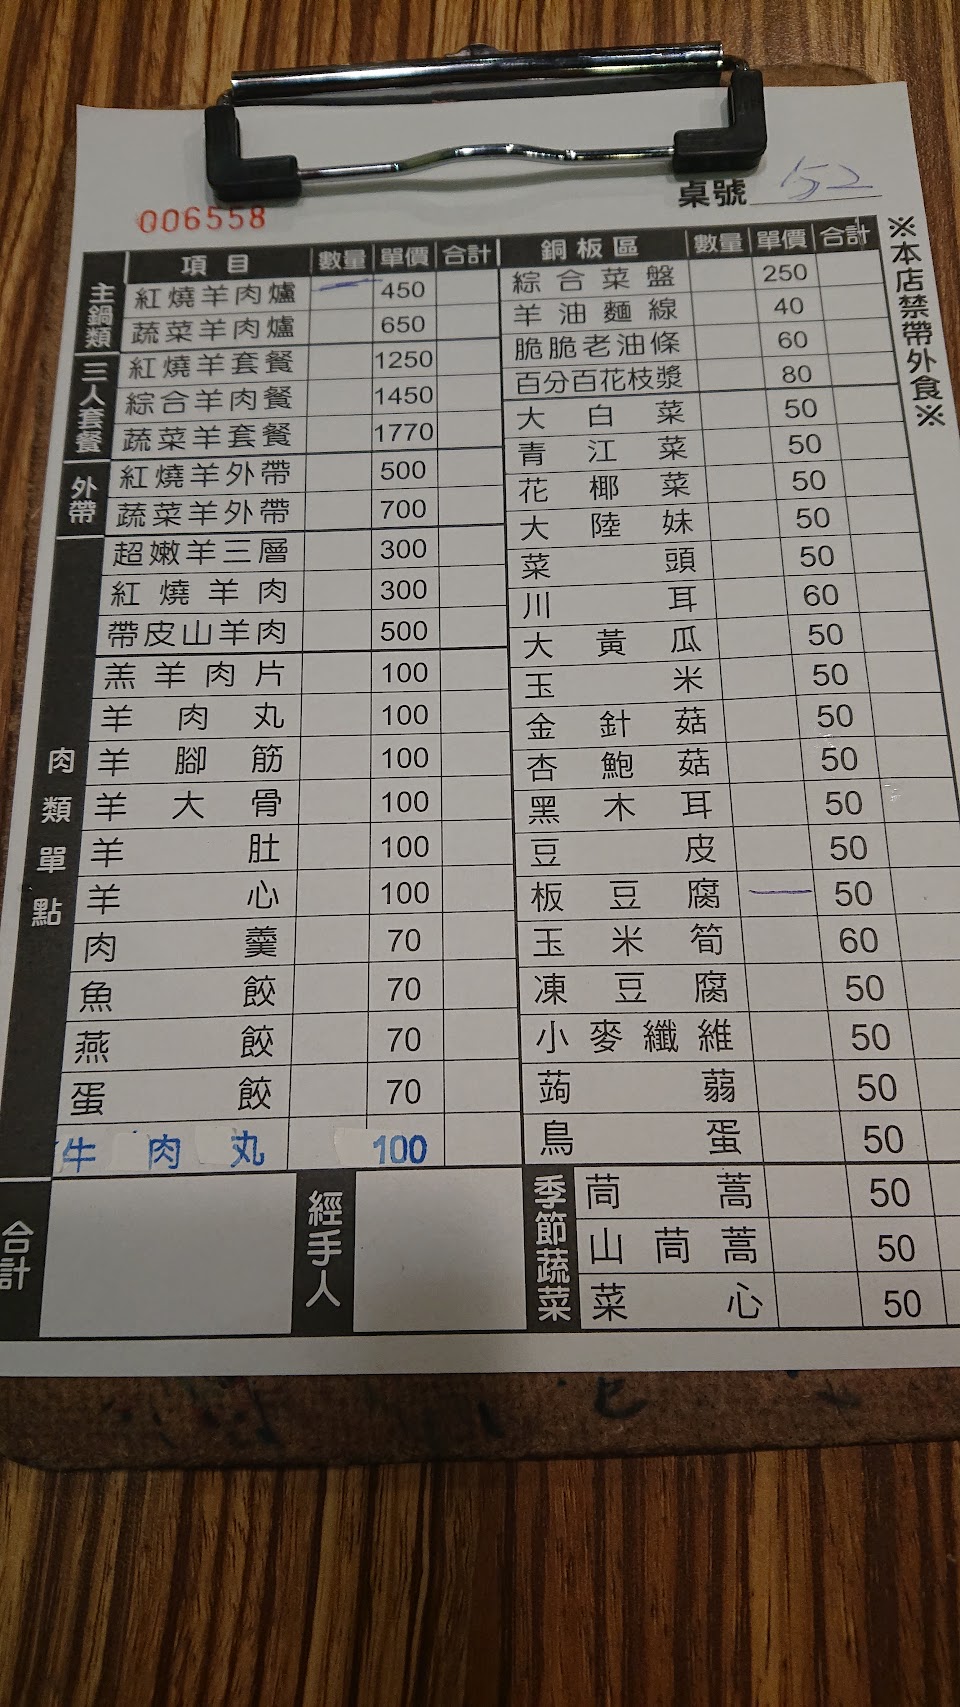 桌號 152
006558
※本店禁帶外食※
項目 數量 單價 合計
主鍋類
紅燒羊肉爐 一 450
蔬菜羊肉爐 650
三人套餐
紅燒羊套餐 1250
綜合羊肉餐 1450
蔬菜羊套餐 1770
外帶
紅燒羊外帶 500
蔬菜羊外帶 700
肉類單點
超嫩羊三層 300
紅燒羊肉 300
帶皮山羊肉 500
羔羊肉片 100
羊肉丸 100
羊腳筋 100
羊大骨 100
羊肚 100
羊心 100
肉羹 70
魚餃 70
燕餃 70
蛋餃 70
牛肉丸 100
合計
經手人
銅板區 數量 單價 合計
綜合菜盤 250
羊油麵線 40
脆脆老油條 60
百分百花枝漿 80
大白菜 50
青江菜 50
花椰菜 50
大陸妹 50
菜頭 50
川耳 60
大黃瓜 50
玉米 50
金針菇 50
杏鮑菇 50
黑木耳 50
豆皮 50
板豆腐 一 50
玉米筍 60
凍豆腐 50
小麥纖維 50
蒟蒻 50
鳥蛋 50
季節蔬菜
茼蒿 50
山茼蒿 50
菜心 50